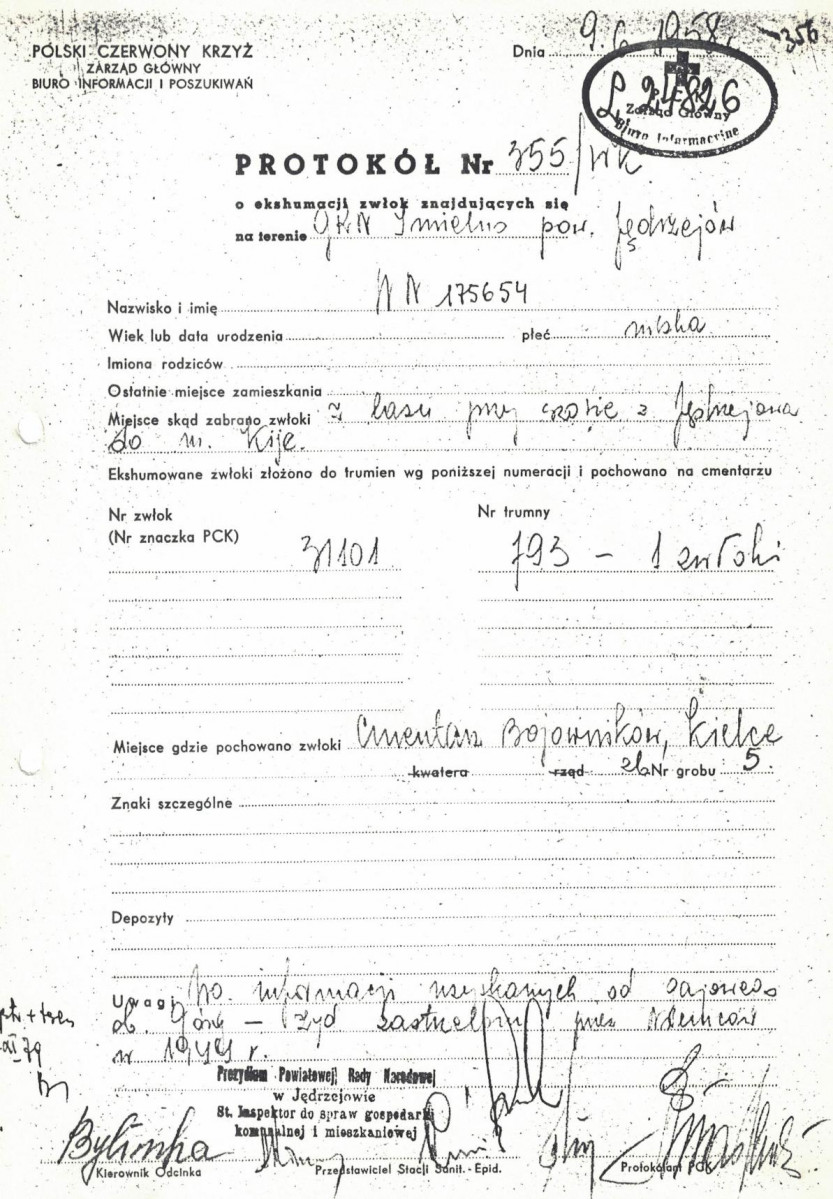 POLSKI CZERWONY KRZYŻ
ZARZĄD GŁÓWNY
BIURO INFORMACJI I POSZUKIWAŃ
Dnia 9. 6. 1958 r. 356
L. 24826
P.C.K.
Zarząd Główny
Biuro Informacyjne
PROTOKÓŁ Nr 355/
o ekshumacji zwłok znajdujących się
na terenie GRN Imielno pow. Jędrzejów
Nazwisko i imię NN 175654
Wiek lub data urodzenia płeć męska
Imiona rodziców
Ostatnie miejsce zamieszkania
Miejsce skąd zabrano zwłoki z lasu przy szosie z Jędrzejowa
do m. Kije.
Ekshumowane zwłoki złożono do trumien wg poniższej numeracji i pochowano na cmentarzu
Nr zwłok Nr trumny
(Nr znaczka PCK)
31101 793 – 1 zwłoki
Miejsce gdzie pochowano zwłoki Cmentarz Bojowników, Kielce
kwatera rząd zb. Nr grobu 5.
Znaki szczególne
Depozyty
Uwagi informacji uzyskanych od gajowego
ob. Góra – Żyd zastrzelony przez Niemców
w 1944 r.
Prezydium Powiatowej Rady Narodowej
w Jędrzejowie
St. Inspektor do spraw gospodarki
komunalnej i mieszkaniowej
Bylinka
Kierownik Odcinka Przedstawiciel Stacji Sanit.-Epid. Protokólant PCK